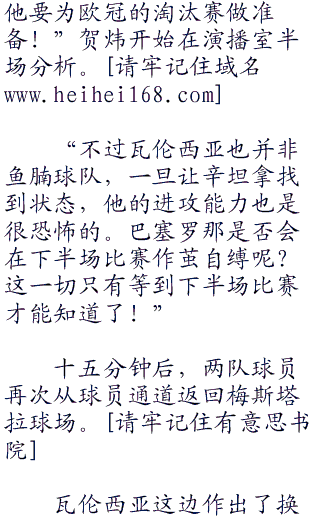 他要为欧冠的淘汰赛做准
备！”贺炜开始在演播室半
场分析。[请牢记住域名
www.heihei168.com]
“不过瓦伦西亚也并非
鱼腩球队，一旦让辛坦拿找
到状态，他的进攻能力也是
很恐怖的。巴塞罗那是否会
在下半场比赛作茧自缚呢？
这一切只有等到下半场比赛
才能知道了！”
十五分钟后，两队球员
再次从球员通道返回梅斯塔
拉球场。[请牢记住有意思书
院]
瓦伦西亚这边作出了换